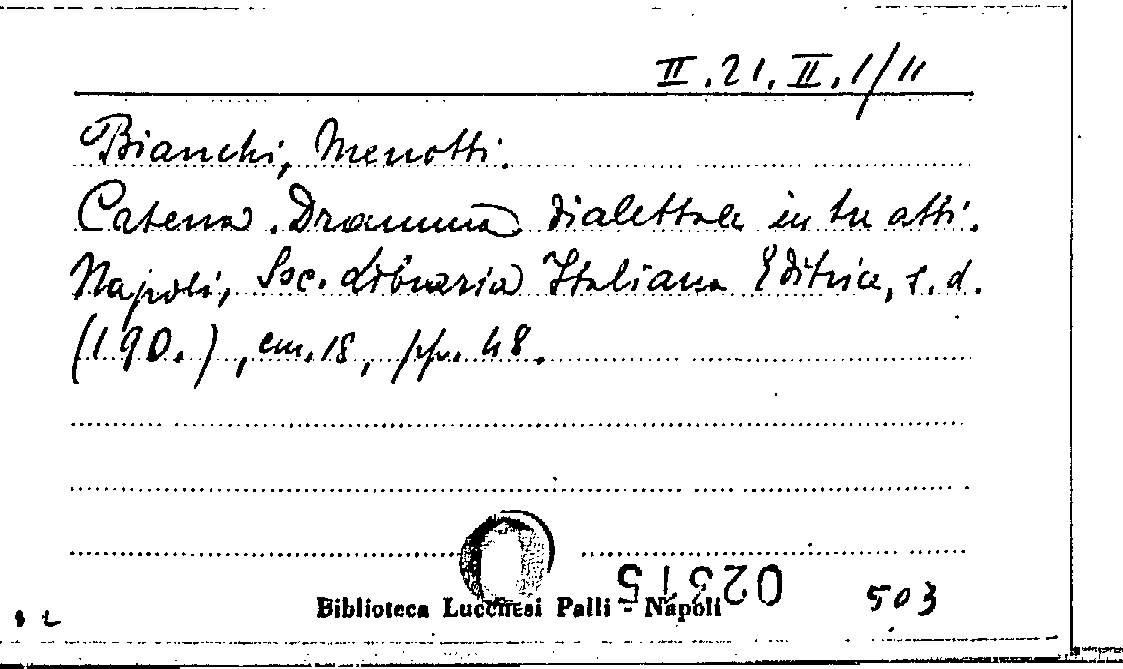 II.21.II.1/11
Bianchi, Menotti.
Catena. Dramma dialettale in tre atti.
Napoli, Soc. Libraria Italiana Editrice, s.d.
(190.), cm.18, pp. 48.
02315
Biblioteca Lucchesi Palli - Napoli
503